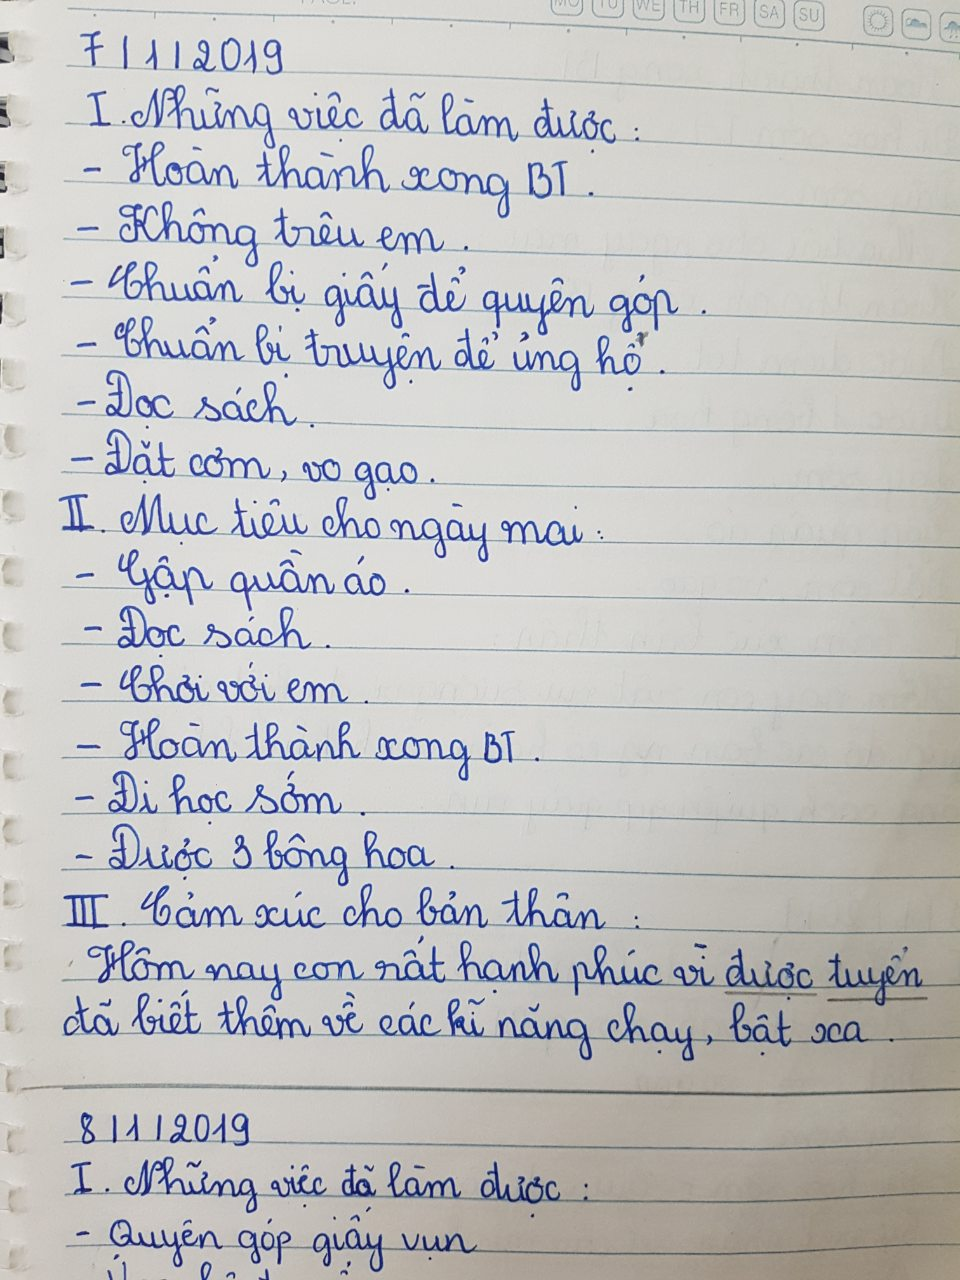 MO TU WE TH FR SA SU
7/1/2019
I. Những việc đã làm được:
- Hoàn thành xong BT.
- Không trêu em.
- Chuẩn bị giấy để quyên góp.
- Chuẩn bị truyện để ủng hộ.
- Đọc sách.
- Đặt cơm, vo gạo.
II. Mục tiêu cho ngày mai:
- Gập quần áo.
- Đọc sách.
- Chơi với em.
- Hoàn thành xong BT.
- Đi học sớm.
- Được 3 bông hoa.
III. Cảm xúc cho bản thân:
Hôm nay con rất hạnh phúc vì được tuyển
đã biết thêm về các kĩ năng chạy, bật xa.
8/1/2019
I. Những việc đã làm được:
- Quyên góp giấy vụn